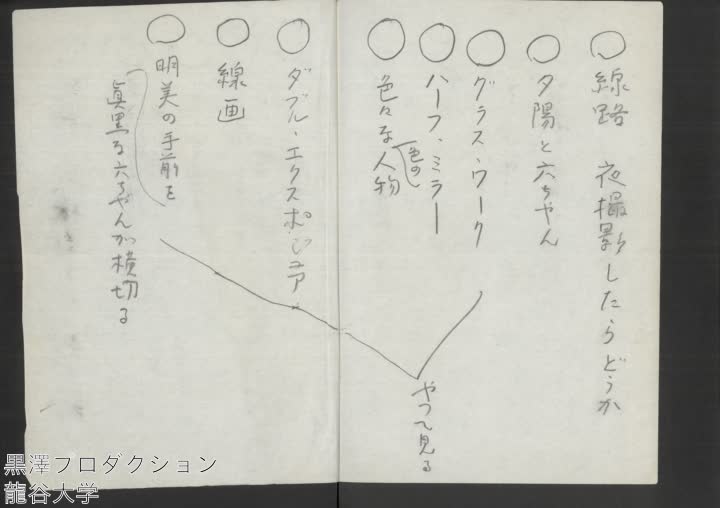 ○ 線路 夜撮影したらどうか
○ 夕陽と六ちゃん
○ グラス・ワーク
○ ハーフ・ミラー
○ 色々な人物
色の
やつて見る
○ ダブル・エクスポジュア
○ 線画
○ 明美の手前を
眞黒な六ちゃんが横切る
黒澤プロダクション
龍谷大学